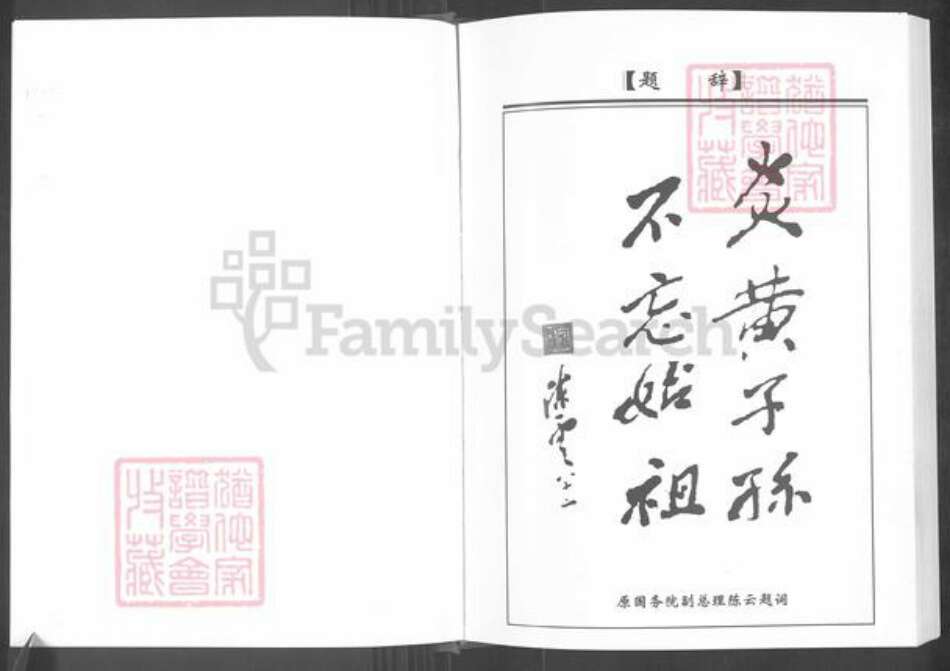 【题 辞】
炎黄子孙
不忘始祖
陈云 八二
原国务院副总理陈云题词
猶他家
譜學會
收藏
猶他家
譜學會
收藏
FamilySearch